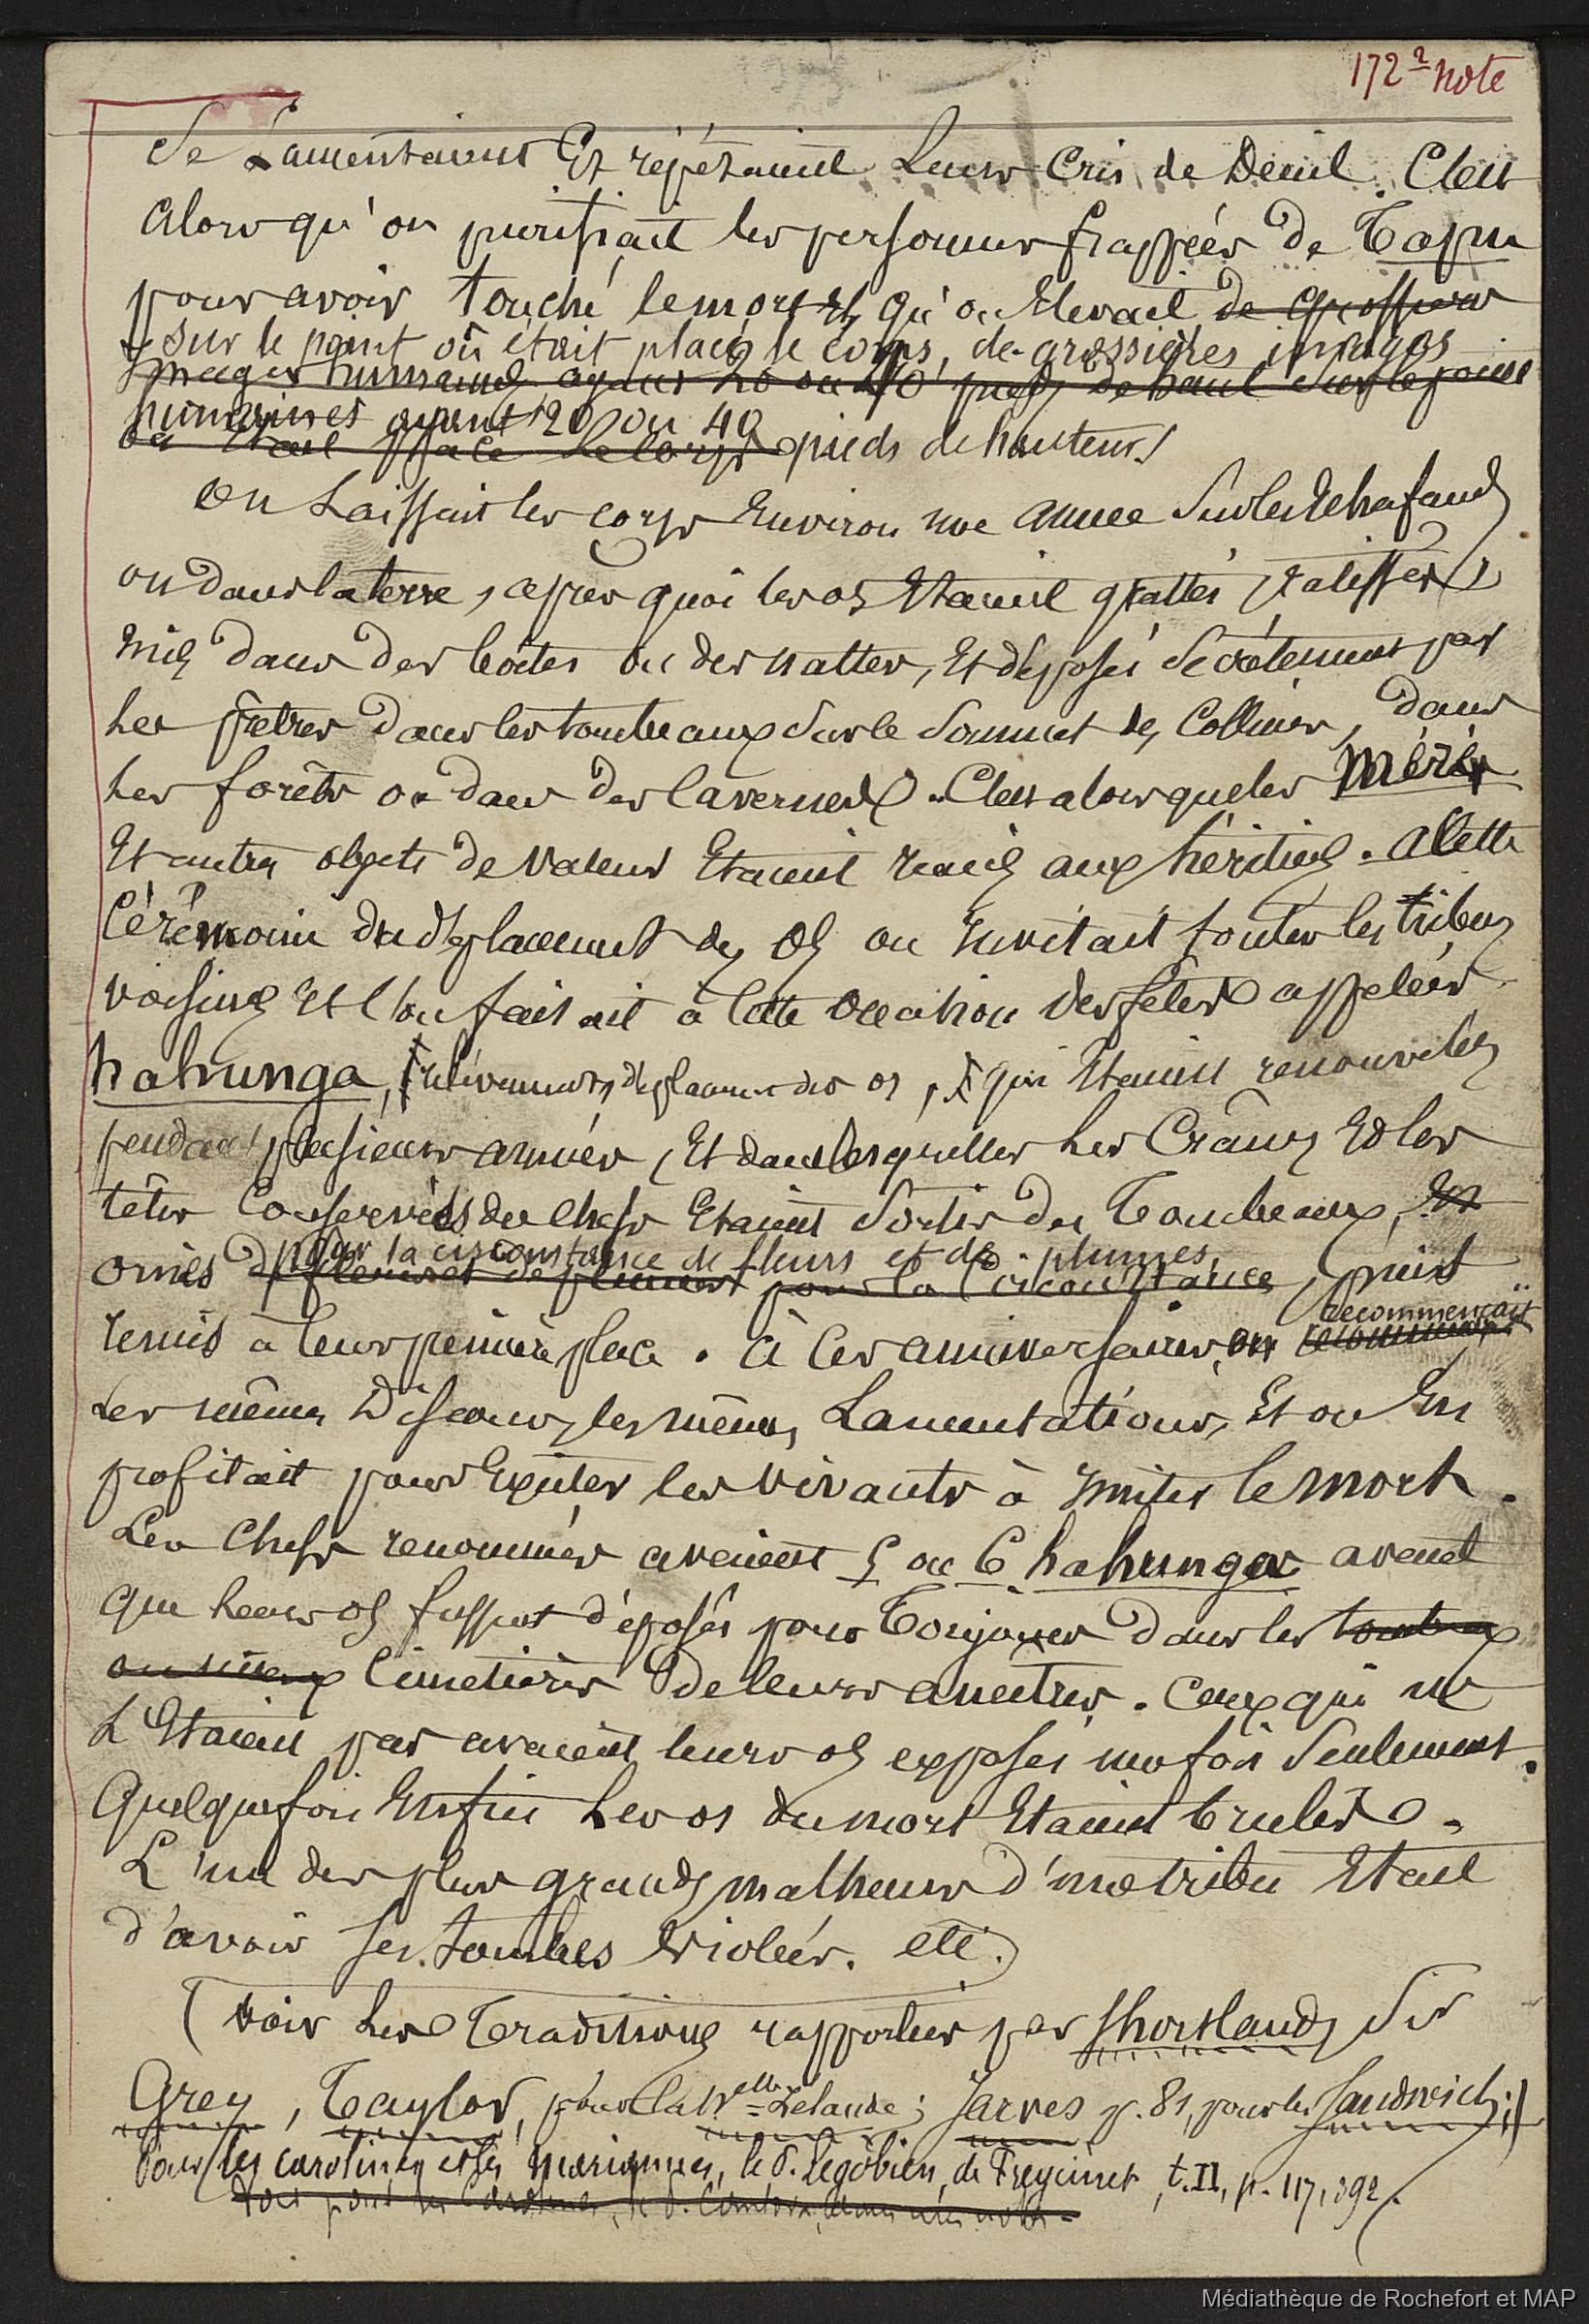 172 2 note
Se Lamentaient Et répétaient Leurs Cris de Deuil. C'est
alors qu'on purifiait les personnes frappées de Tapu
pour avoir touché le mort et qu'on Elevait de grossieres
sur le point où était placé le corps, de grossières images
images humaines ayant 20 ou 40 pieds de haut sur le point
humaines ayant 20 ou 40
où était placé le corps pieds de hauteur.
On Laissait les corps Environ une année Sur les Echafauds
ou dans la terre, après quoi les os Etaient grattés, ratissés,
mis dans des boîtes ou des nattes, Et déposés Secrètement par
les prêtres dans les tombeaux sur le Sommet des Collines, dans
les forêts ou dans des Cavernes. C'est alors que les méré
Et autres objets de valeur Etaient remis aux héritiers. à Cette
Cérémonie du déplacement des Os on invitait toutes les tribus
voisines Et l'on faisait à cette occasion des fêtes appelées
hahunga, (enlèvement, déplacement des os,) qui Etaient renouvelées
pendant plusieurs années, Et dans lesquelles les Crânes Et les
têtes Conservées des chefs Etaient Sortis des Tombeaux, Et
pour la circonstance de fleurs et de plumes,
ornés de fleurs et de plumes pour la Circonstance, puis
recommençait
remis à leur première place. à Ces anniversaires, on recommençait
Les mêmes Discours, les mêmes Lamentations, Et on En
profitait pour Exciter les vivants à Imiter le mort.
Les Chefs renommés avaient 5 ou 6 hahunga avant
que leurs os fussent déposés pour Toujours dans les tombeaux
ou mieux Cimetières de leurs ancêtres. Ceux qui ne
L'Etaient pas avaient leurs os exposés une fois Seulement.
Quelquefois Enfin Les os du mort Etaient brulés.
L'un des plus grands malheurs d'une tribu Etait
d'avoir ses tombes violées. etc.)
(voir Les Traditions rapportées par Shortland, Sir
Grey, Taylor, pour la Nelle Zelande; Jarves p. 81, pour les Sandwich;)
Pour les carolines et les mariannes, le P. Legobien, de Freycinet, t. II, p. 117, 392.